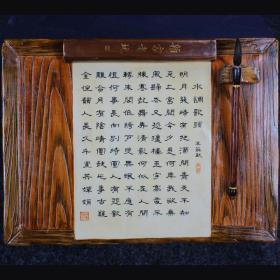 水調歌頭
明月幾時有把酒問青天不知
天上宮闕今夕是何年我欲乘
風歸去又恐瓊樓玉宇高處不
勝寒起舞弄清影何似在人間
轉朱閣低綺戶照無眠不應有
恨何事長向別時圓人有悲歡
離合月有陰晴圓缺此事古難
全但願人長久千里共嬋娟